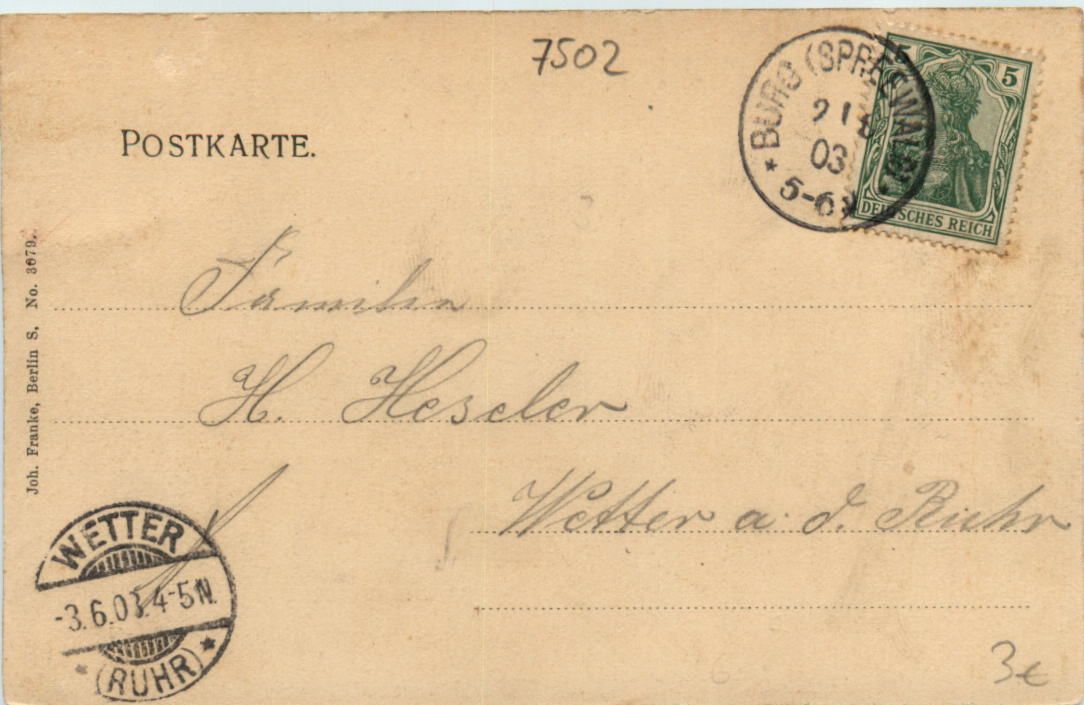 7502
POSTKARTE.
BURG (SPREEWALD)
03
5-6N
5 5
DEUTSCHES REICH
Familie
H. Heseler
Wetter a. d. Ruhr
Joh. Franke, Berlin S, No. 3679.
WETTER
-3.6.03.4-5N.
* (RUHR) *
3€